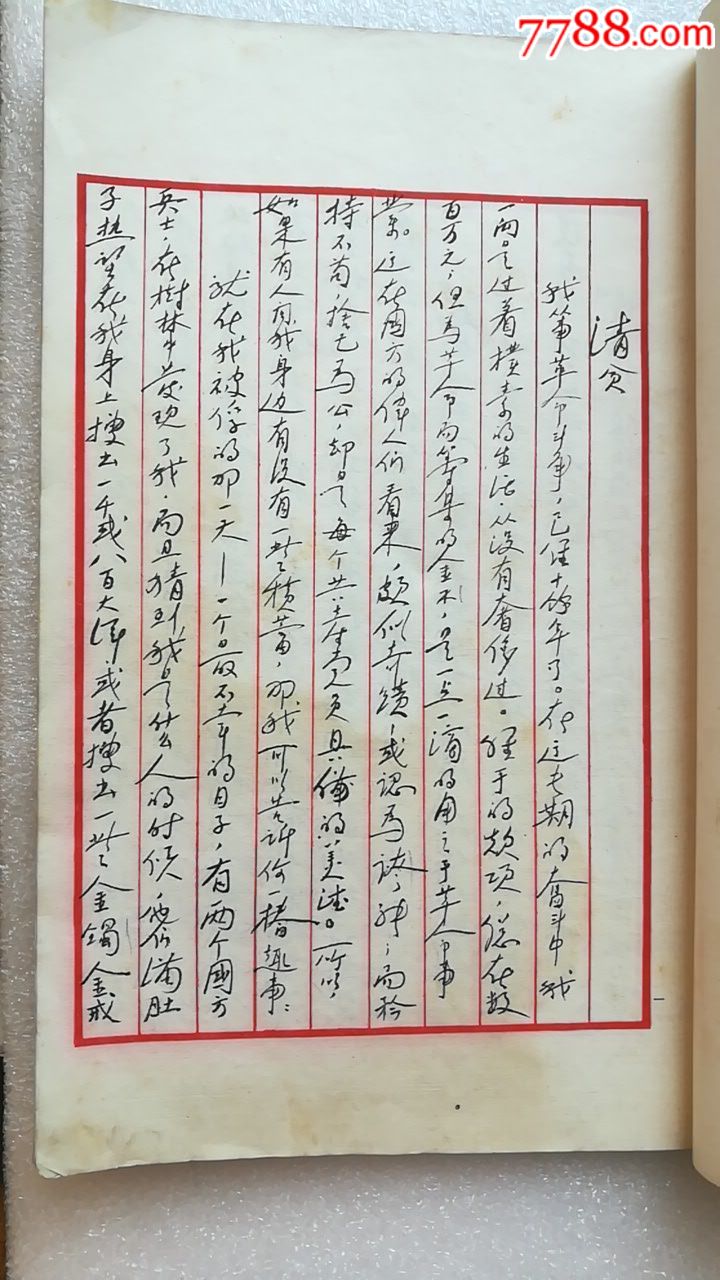 7788.com
清贫
我从事革命斗争，已经十余年了。在这长期的奋斗中我
一向是过着樸素的生活，从没有奢侈过。经手的款项，總在数
百万元，但為革命而筹集的金钱，是一点一滴的用之于革命事
業。这在國方的偉人们看来，颇似奇蹟，或認為誇张；而矜
持不苟，捨己為公，却是每个共产党员具備的美德。所以，
如果有人问我身边有没有一些積蓄，那我可以告诉你一桩趣事：
就在我被俘的那一天—一个最不幸的日子，有两个國方
兵士，在樹林中發现了我，而且猜到我是什么人的时候，他们满肚
子热望在我身上搜出一千或八百大洋，或者搜出一些金鐲金戒